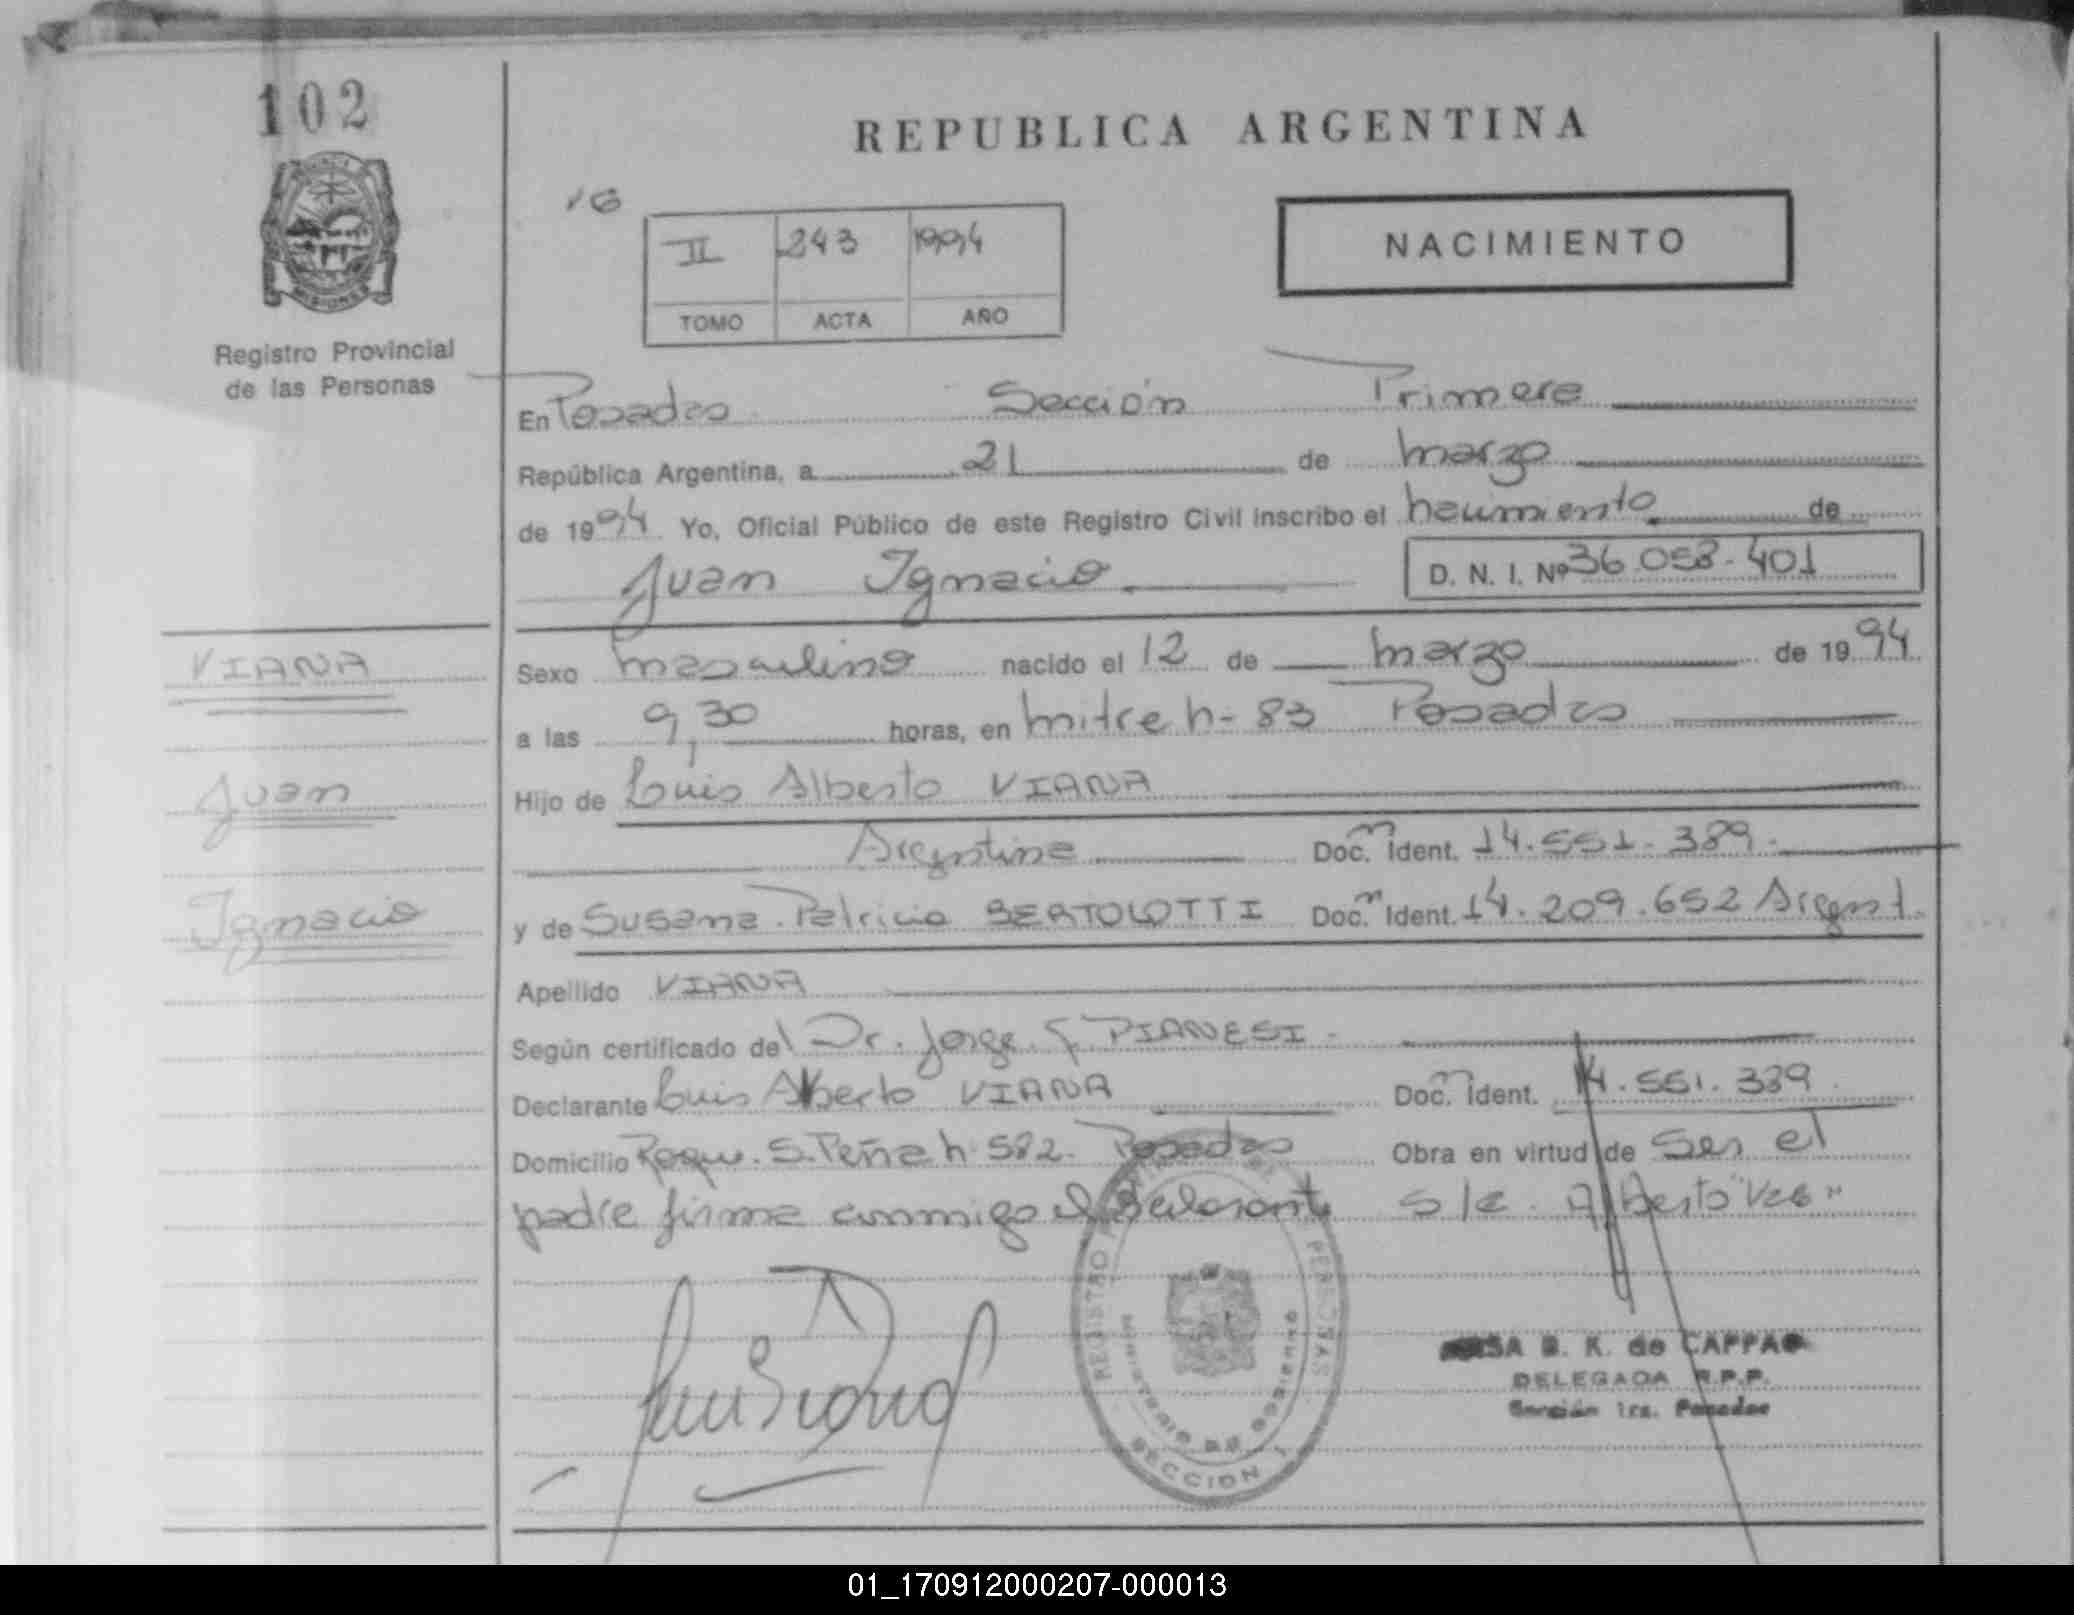 102
MISIONES
Registro Provincial
de las Personas
REPUBLICA ARGENTINA
16
II 243 1994
TOMO ACTA AÑO
NACIMIENTO
En Posadas Sección Primera
República Argentina, a 21 de marzo
de 1994 Yo, Oficial Público de este Registro Civil inscribo el nacimiento de
Juan Ignacio D. N. I. Nº 36.058.401
VIANA
Juan
Ignacio
Sexo masculino nacido el 12 de marzo de 1994
a las 9,30 horas, en mitre n- 83 Posadas
Hijo de Luis Alberto VIANA
Argentina Doc. Ident. 14.551.389.
y de Susana Patricia BERTOLOTTI Doc. Ident. 14.209.652 Argent.
Apellido VIANA
Según certificado del Dr. Jorge PIANESI
Declarante Luis Alberto VIANA Doc. Ident. 14.551.389
Domicilio Roque S. Peña n. 582. Posadas Obra en virtud de Ser el
padre firma conmigo el declarante S/e. Alberto "Vale"
REGISTRO PERSONAS
MINISTERIO DE GOBIERNO
SECCION 1
B. K. de CAPPA
DELEGADA R.P.P.
Sección 1ra. Posadas
01_170912000207-000013